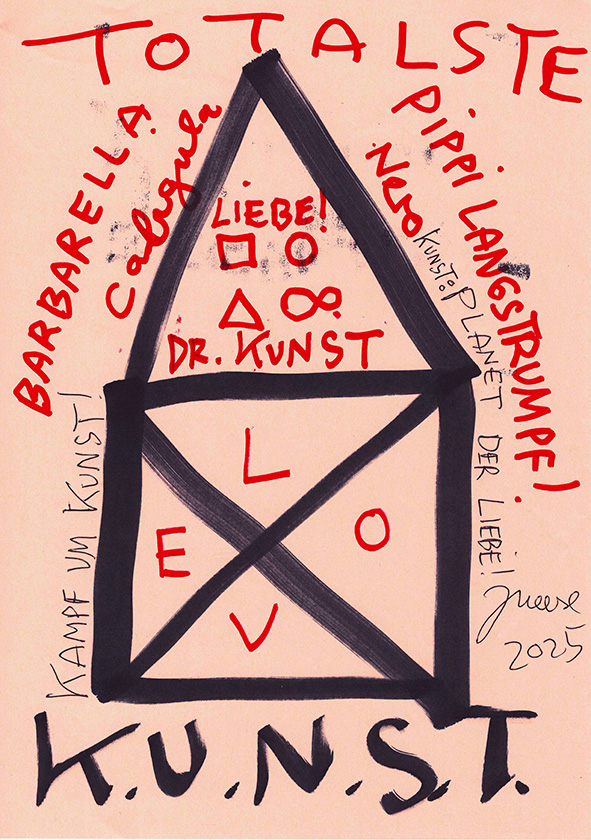 TOTALSTE
BARBARELLA
Caligula
PIPPI LANGSTRUMPF!
Nero
KUNST: PLANET DER LIEBE!
LIEBE!
DR. KUNST
KAMPF UM KUNST!
L
O
V
E
Meese
2025
K.U.N.S.T.